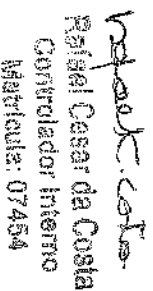 Rafael Cesar da Costa
Controlador Interno
Matrícula: 07454